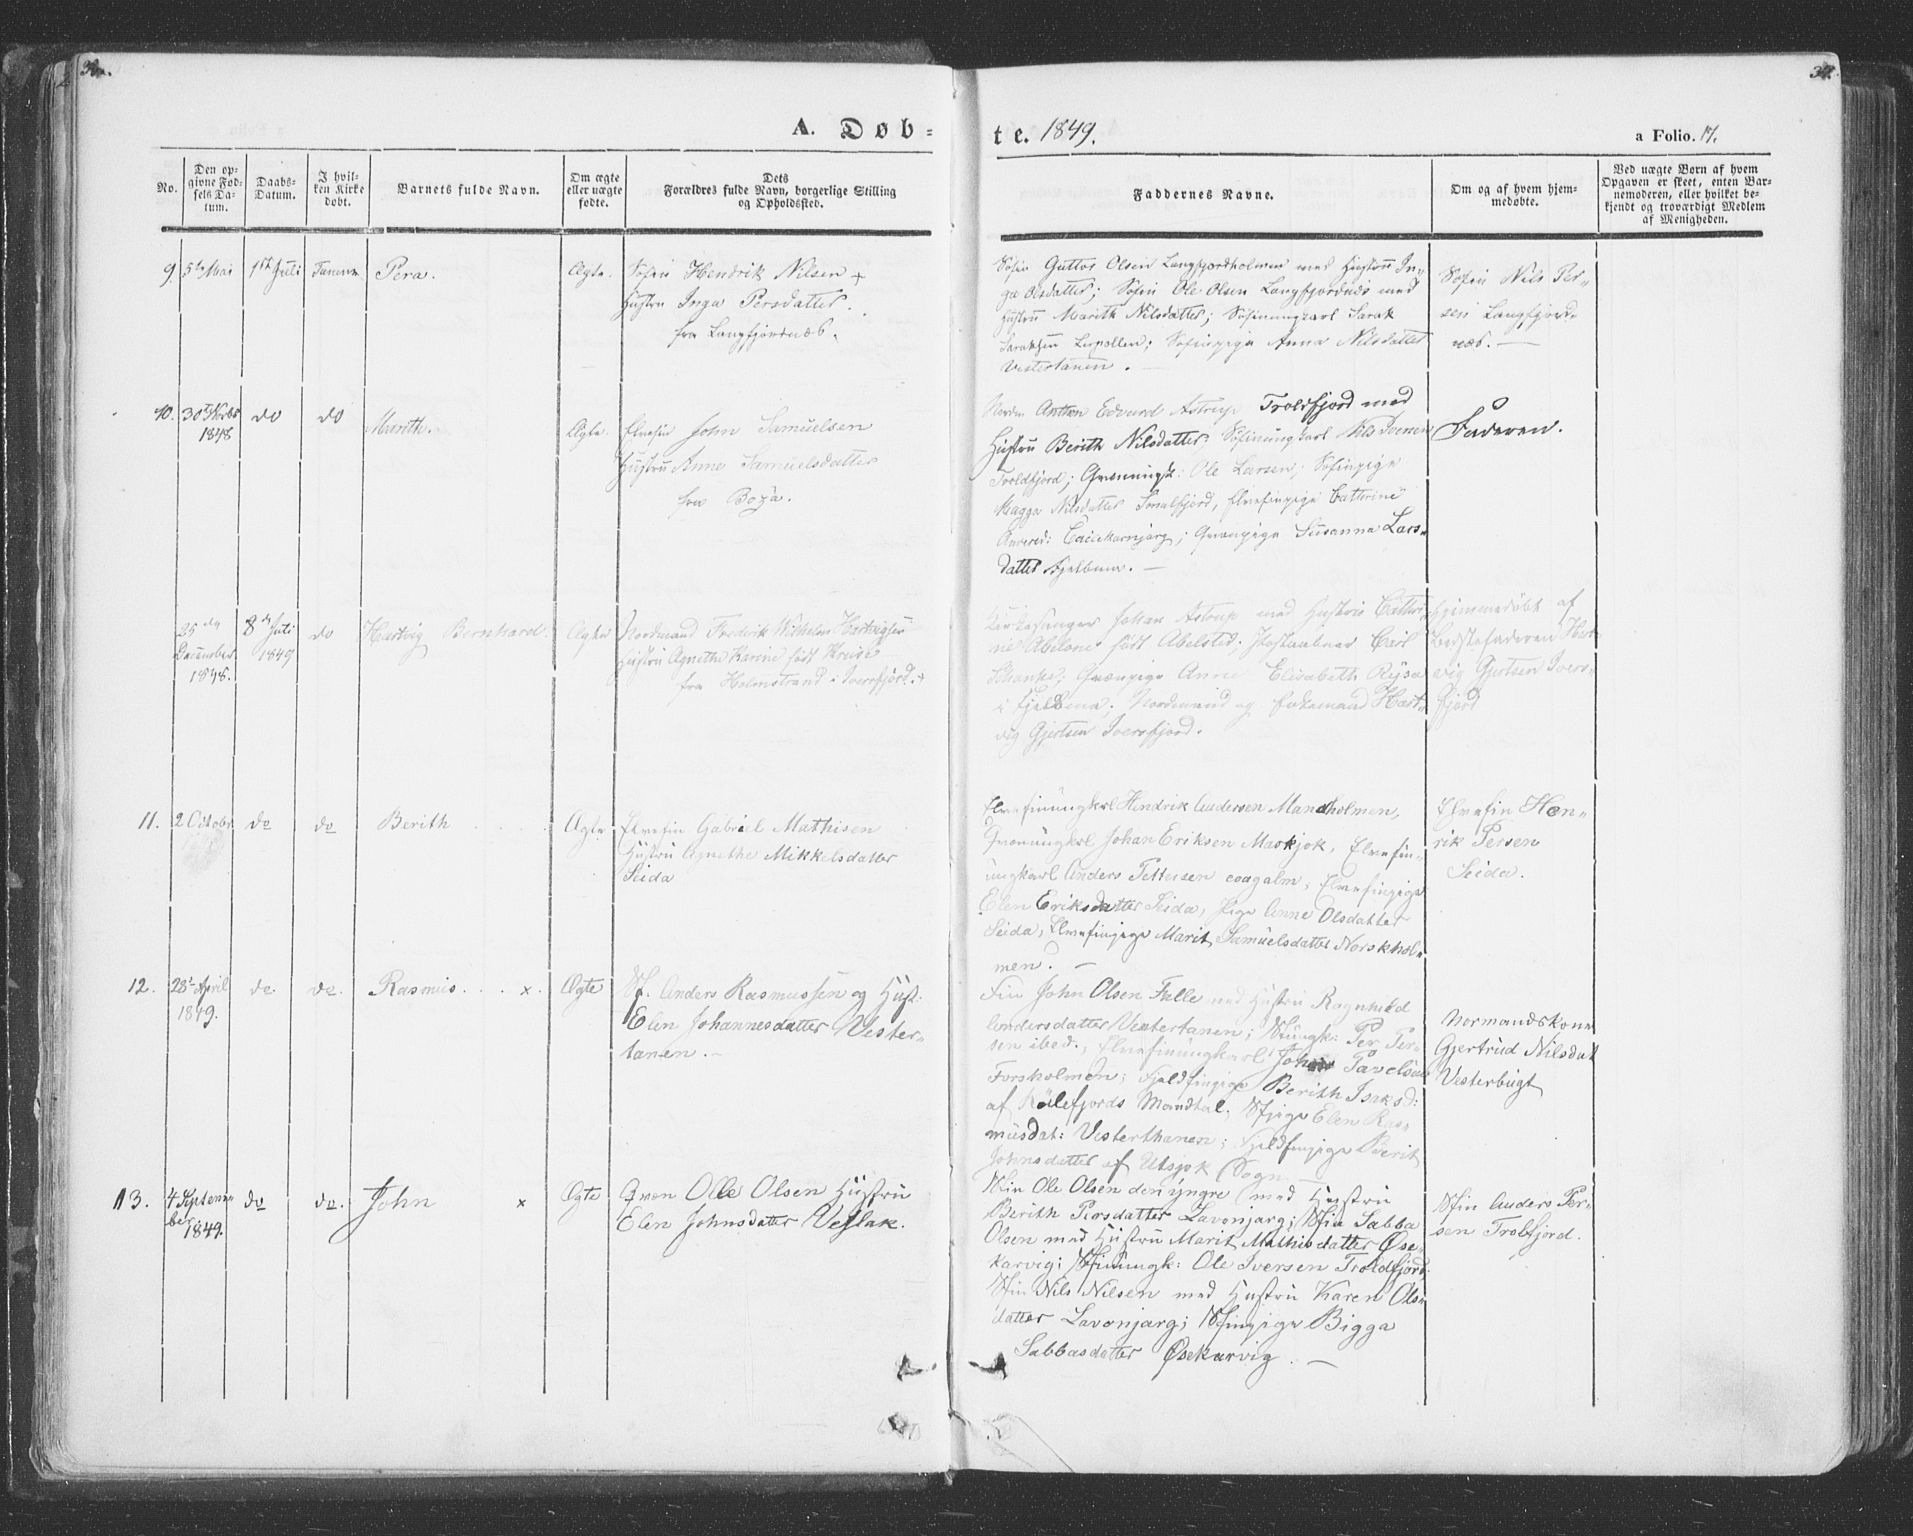 A. Døb=
te. 1849.
a Folio. 17.
No.
Den op-
givne Fød-
sels Da-
tum.
Daabs-
Datum.
I hvil-
ken Kirke
døbt.
Barnets fulde Navn.
Om ægte
eller uægte
fødte.
Dets
Forældres fulde Navn, borgerlige Stilling
og Opholdssted.
Faddernes Navne.
Om og af hvem hjem-
medøbte.
Ved uægte Børn af hvem
Opgaven er skeet, enten Bar-
nemoderen, eller hvilket be-
kjendt og troværdigt Medlem
af Menigheden.
9. 5te Mai 1ste Juli Pera. Ægte.
Søfin Hendrik Nilsen +
Hustru Inga Persdatter.
fra Langfjordnæs.
Søfin Guttor Olsen Langfjordholmen med Hustru In-
ga Olsdatter; Søfin Ole Olsen Langfjordnæs med
Hustru Marith Nilsdatter; Søfinungkarl Sarak
Saraksen; Søfinpige Anna Nilsdatter
Vestertanen.
Søfin Nils Per-
sen Langfjord-
næs. —
10. 30te Novbr
1848
do do Marith. Ægte.
Elvefin John Samuelsen
Hustru Anne Samuelsdatter
fra
Anthon Edvard Astrup Troldfjord med
Hustru Berith Nilsdatter, Søfinungkarl Nils Iversen
Troldfjord; Ole Larsen; Søfinpige
Magga Nilsdatter Smalfjord, Elvefinpige Catterine
Susanna Lars-
datter Fjelbma. —
Faderen.
25de
December
1848.
8de Juli
1849
do Hartvig Bernhard. Ægte
Nordmand Frederik Wilhelm Hartvigsen
Hustru Agnethe Karine født Kreise
fra Holmstrand i Iversfjord. +
Kirkesanger Johan Astrup med Hustru Cathri-
ne Abelone født Abelsted; Carl
Schanke; Anne Elisabeth
i Fjelbma; Nordmand og Hart-
vig Gjertsen Iversfjord.
Hjemmedøbt af
Bedstefaderen Hart-
vig Gjertsen Ivers-
fjord
11. 2 Octobr do do Berith Ægte
Elvefin Gabriel Mathisen
Hustru Agnethe Mikkelsdatter
Seida
Elvefinungkrl Hendrik Andersen Mandholmen,
Johan Eriksen Maskjok, Elvefin-
ungkarl Anders Pettersen, Elvefinpige
Elen Eriksdatter Seida, Pige Anne Olsdatter
Seida, Elvefinpige Marit Samuelsdatter Norskhol-
men. —
Elvefin Hen-
rik Persen
Seida.
12. 28de April
1849.
do. do. Rasmus. x. Ægte
Sf. Anders Rasmussen og Hust:
Elen Johannesdatter Vester-
tanen. —
Fin John Olsen Falle med Hustru Ragnhild
Andersdatter Vestertanen; Per Per-
sen ibed., Elvefinungkarl Pavelsen
Forsholmen; Fjeldfinpige Berith Isaksd:
af Mandtal; Elen Ras-
musdat: Vesterthanen; Fjeldfinpige Berit
Johnsdatter af Utsjok Sogn.
Normandskone
Gjertrud Nilsdat
Vesterbugt
13. 4 Septem-
ber
1849.
do do. John x Ægte
Qvæn Olle Olsen Hustru
Elen Johnsdatter Veslak.
Sfin Ole Olsen den yngre med Hustru
Berith Persdatter Lavonjarg; Sfin Sabba
Olsen med Hustru Marit Mathisdatter Øse-
karvig; Sfinungk: Ole Iversen Troldfjord;
Sfin Nils Nilsen med Hustru Karen Ols-
datter Lavonjarg; Sfinpige Bigga
Sabbasdatter Øsekarvig. —
Sfin Anders Per-
sen Trolfjord.